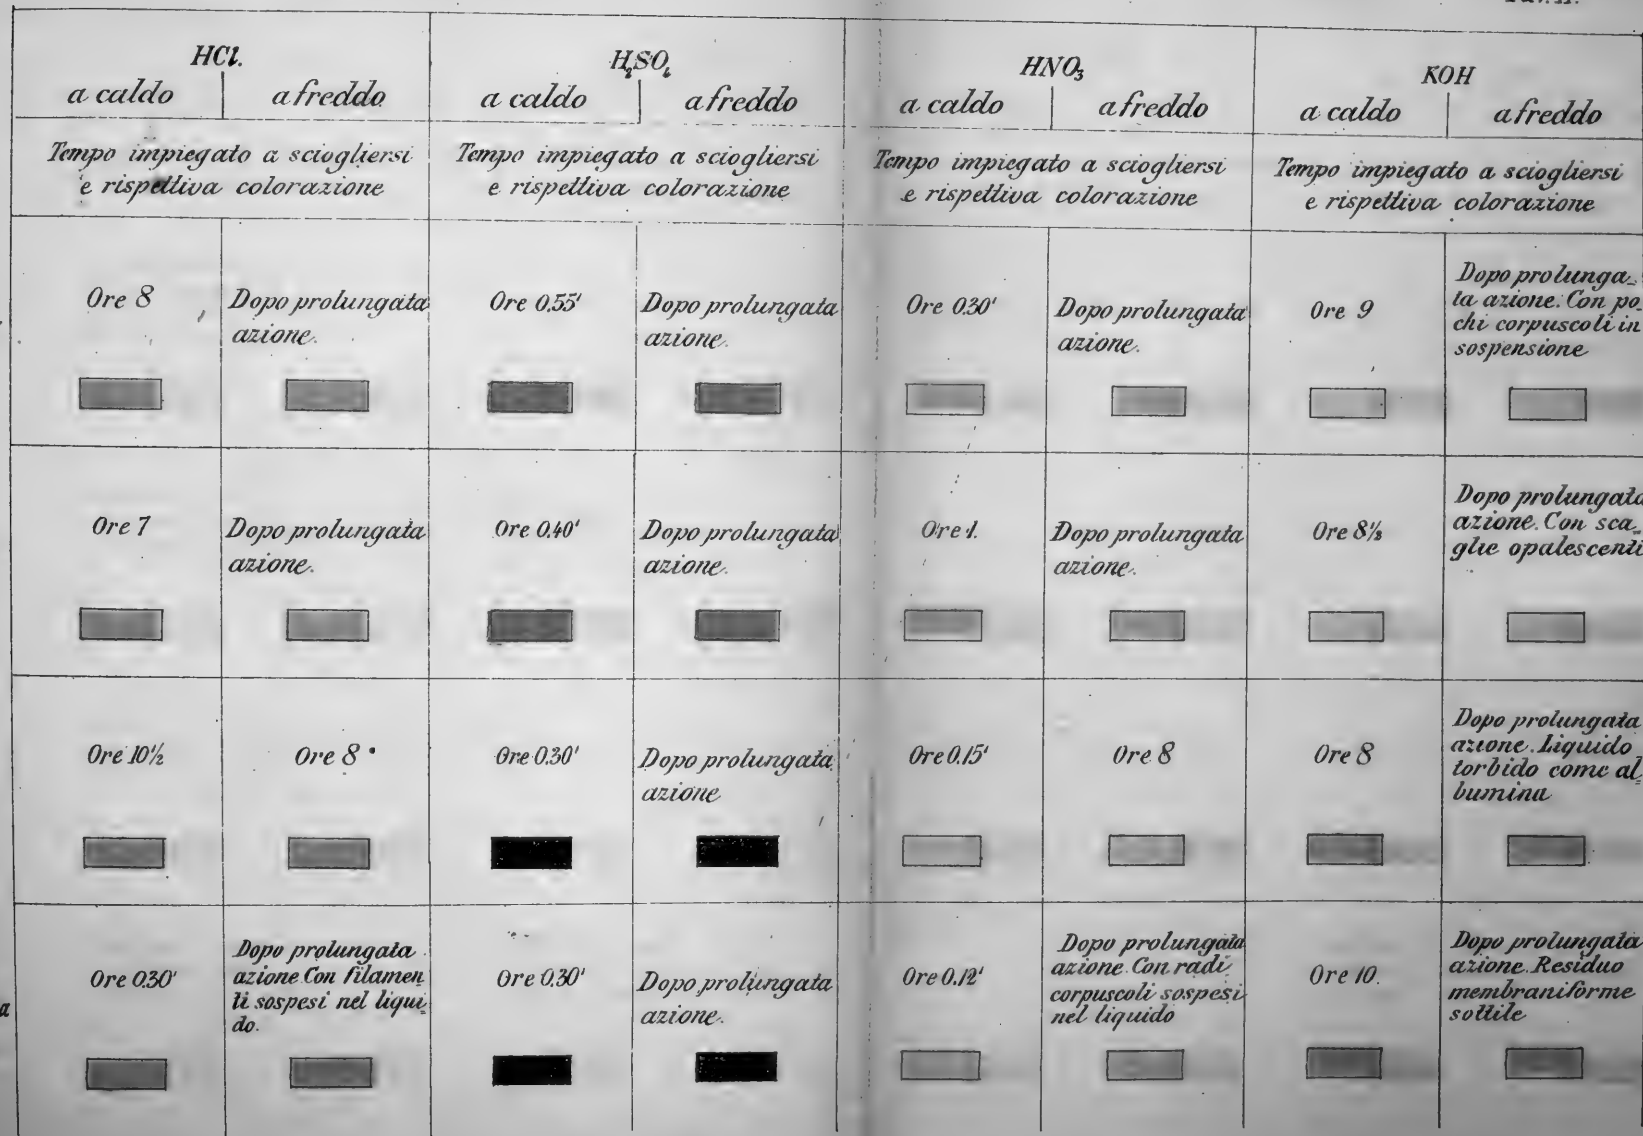 HCl.
a caldo
a freddo
H2SO4
a caldo
a freddo
HNO3
a caldo
a freddo
KOH
a caldo
a freddo
Tempo impiegato a sciogliersi
e rispettiva colorazione
Tempo impiegato a sciogliersi
e rispettiva colorazione
Tempo impiegato a sciogliersi
e rispettiva colorazione
Tempo impiegato a sciogliersi
e rispettiva colorazione
Ore 8
Dopo prolungata
azione.
Ore 0.55'
Dopo prolungata
azione.
Ore 0.30'
Dopo prolungata
azione.
Ore 9
Dopo prolunga-
ta azione. Con po-
chi corpuscoli in
sospensione
Ore 7
Dopo prolungata
azione.
Ore 0.40'
Dopo prolungata
azione.
Ore 1.
Dopo prolungata
azione.
Ore 8½
Dopo prolungata
azione. Con sca-
glie opalescenti
Ore 10½
Ore 8
Ore 0.30'
Dopo prolungata
azione
Ore 0.15'
Ore 8
Ore 8
Dopo prolungata
azione. Liquido
torbido come al-
bumina
Ore 0.30'
Dopo prolungata
azione Con filamen
ti sospesi nel liqui-
do.
Ore 0.30'
Dopo prolungata
azione.
Ore 0.12'
Dopo prolungata
azione. Con radi
corpuscoli sospesi
nel liquido
Ore 10.
Dopo prolungata
azione. Residuo
membraniforme
sottile
a